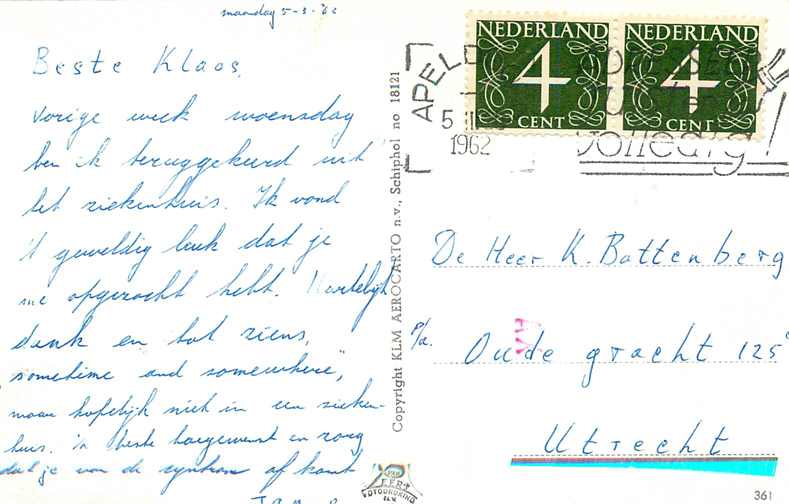 maandag 5-3-'62
Beste Klaas,
Vorige week woensdag
ben ik teruggekeerd uit
het ziekenhuis. Ik vond
't geweldig leuk dat je
me opgezocht hebt. Hartelijk
dank en tot ziens,
"sometime and somewhere",
maar hopelijk niet in een zieken-
huis. 'n beste toegewenst en zorg
dat je van de af komt
Copyright KLM AEROCARTO n.v., Schiphol no 18121
NEDERLAND
4
CENT
NEDERLAND
4
CENT
APELD
5 III
1962
volledig!
De Heer K. Battenberg
p/a. Oude gracht 125
Utrecht
VAN
FOTODRUKKING
N.V.
361